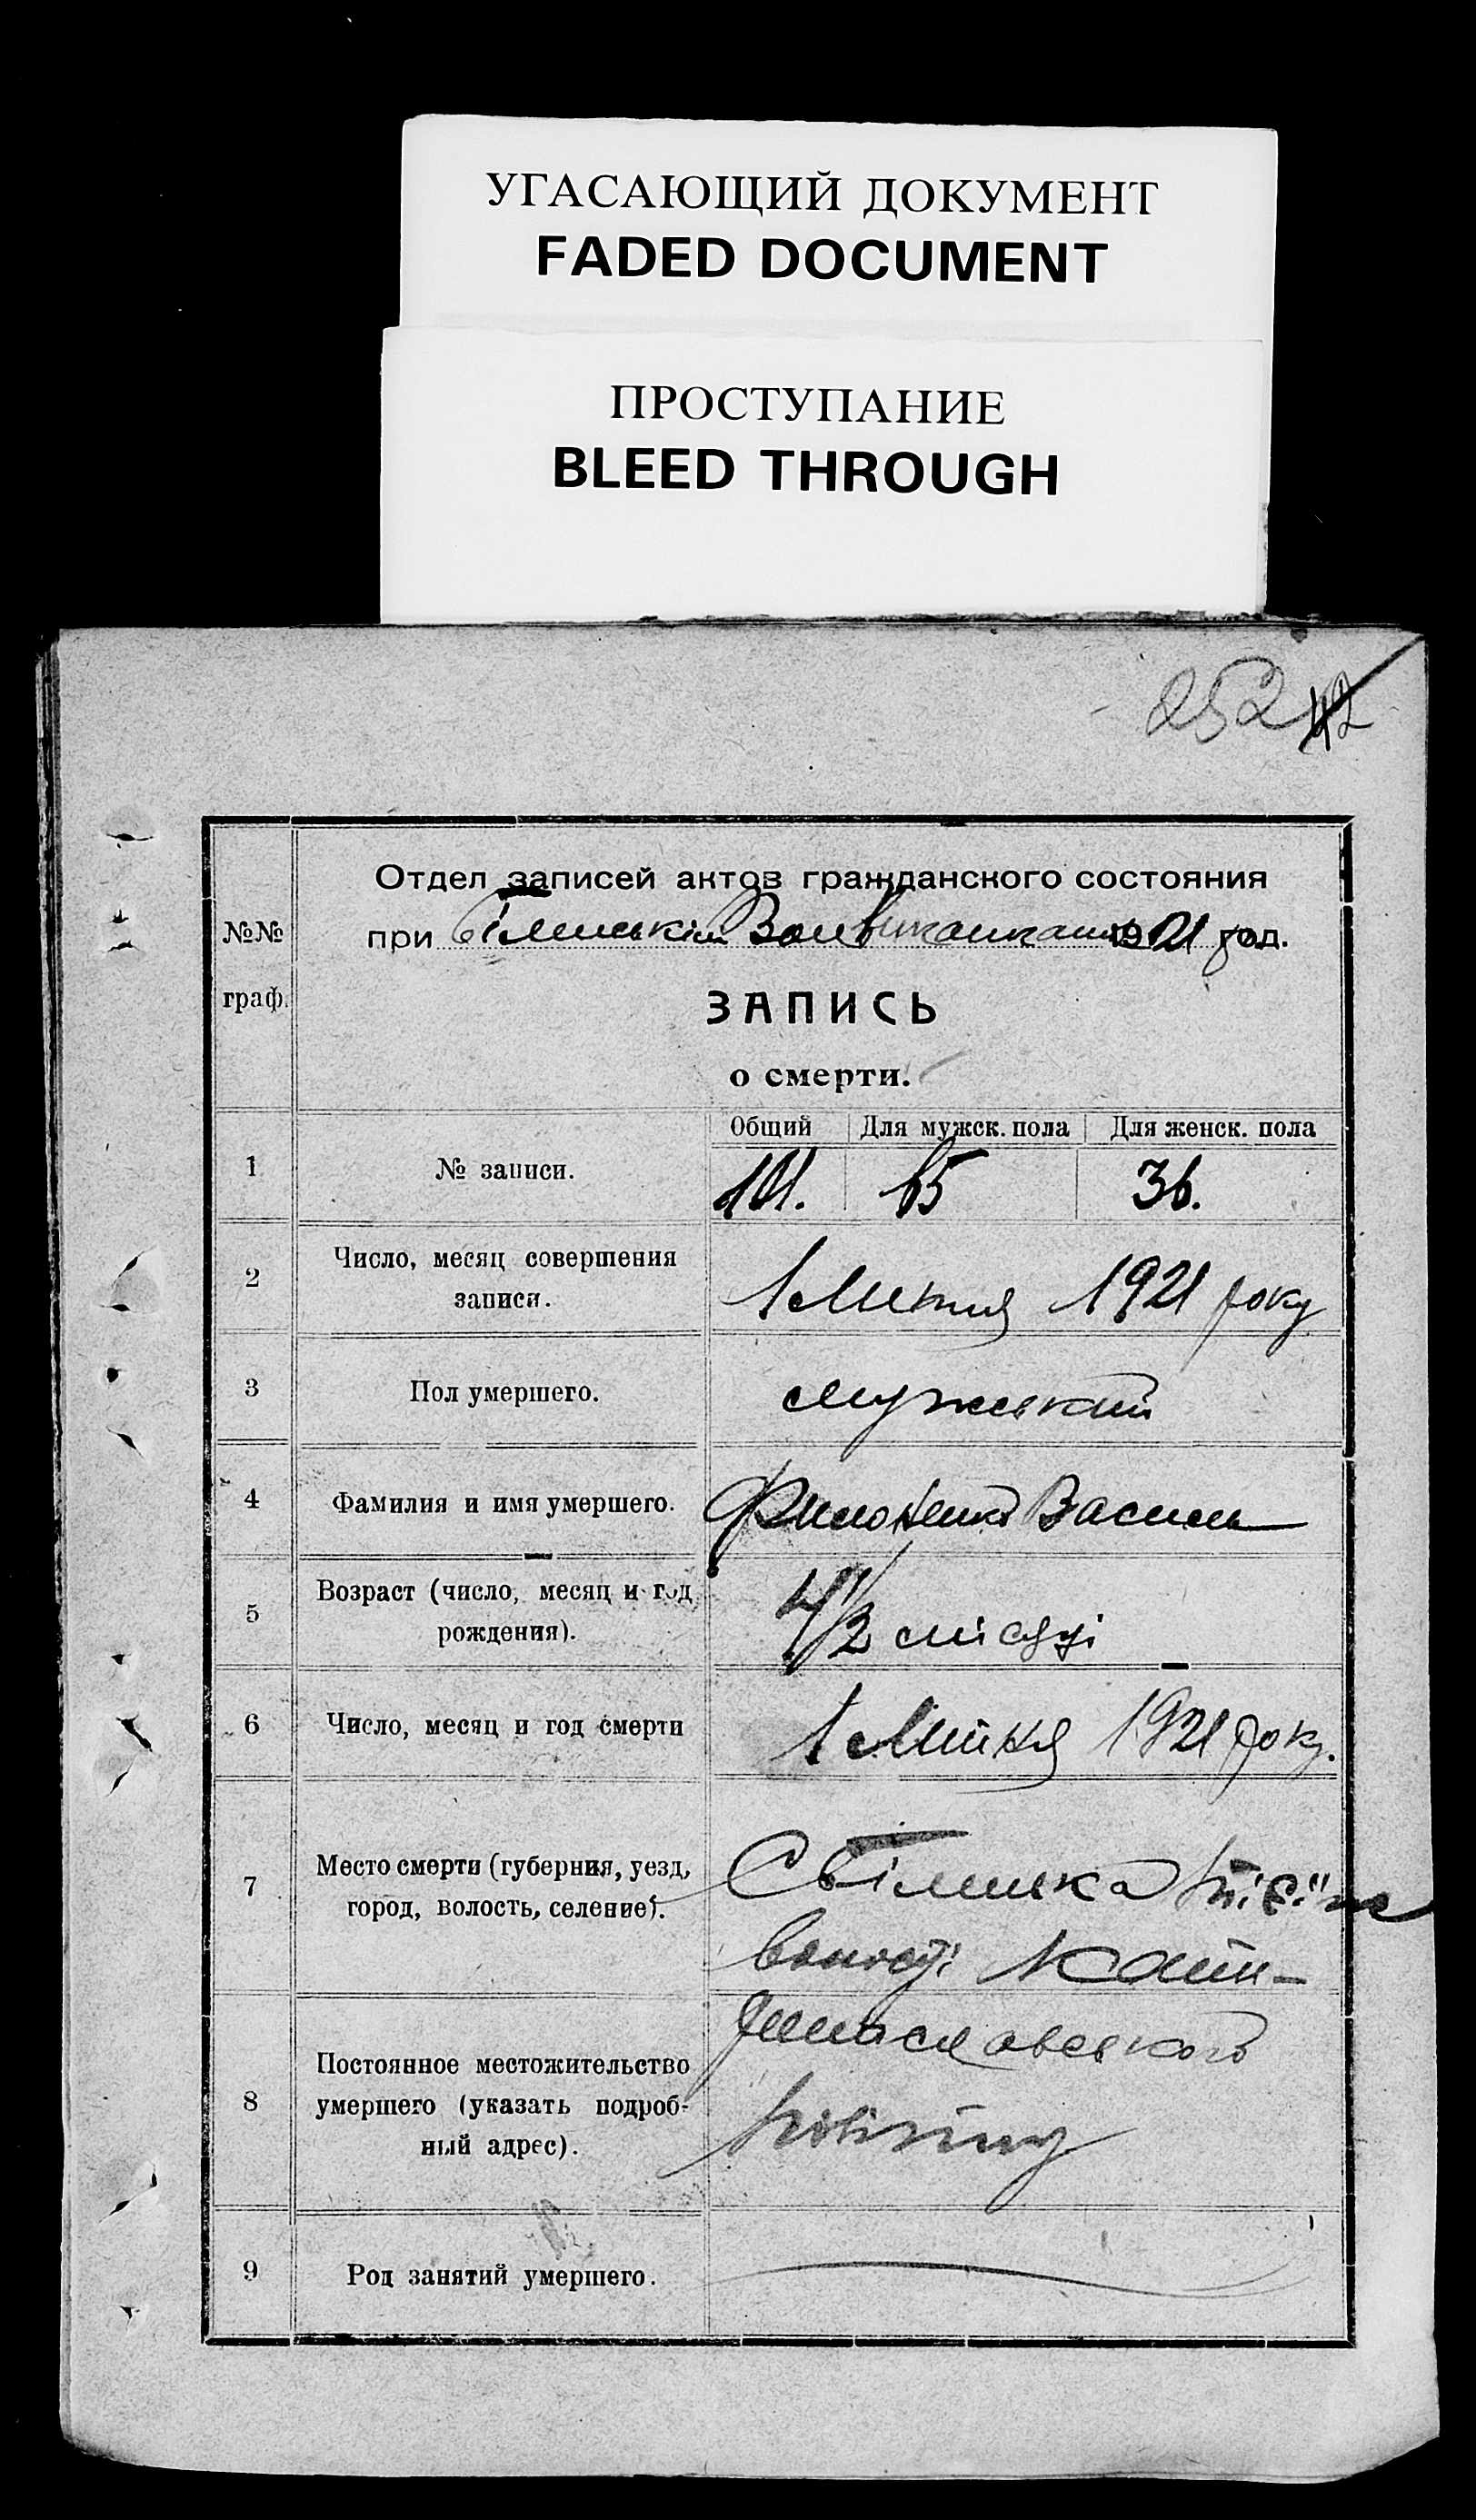 УГАСАЮЩИЙ ДОКУМЕНТ
FADED DOCUMENT
ПРОСТУПАНИЕ
BLEED THROUGH
252 42
Отдел записей актов гражданского состояния
№№ граф.
при 1921 год.
ЗАПИСЬ
о смерти.
Общий Для мужск. пола Для женск. пола
1 № записи. 101. 65 36.
2 Число, месяц совершения
записи. 1 Липня 1921 року
3 Пол умершего. мужський
4 Фамилия и имя умершего. Филоненко Василь
5 Возраст (число, месяц и год
рождения). 4 1/2 місяці
6 Число, месяц и год смерти 1 Липня 1921 року.
7 Место смерти (губерния, уезд,
город, волость, селение).
волості
8 Постоянное местожительство
умершего (указать подроб-
ный адрес).
повіту
9 Род занятий умершего.